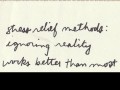 stress relief methods:
ignoring reality
works better than most